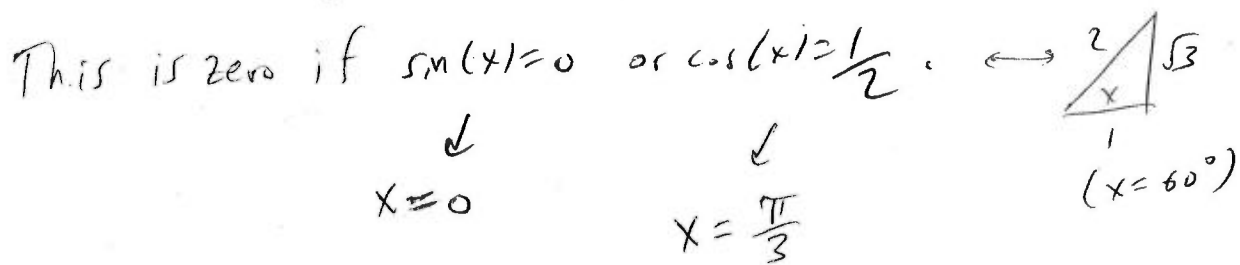 This is zero if sin(x)=0 or cos(x)=1/2. ↔ 2 √3 x 1
↓ ↓
x=0 x=π/3 (x=60°)